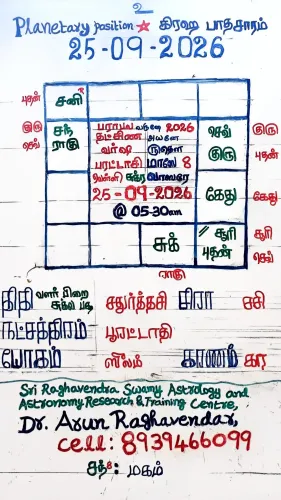 2
Planetary position ☆ கிரஹ பாதசாரம்
25-09-2026
புதன்
சனி
குரு
செவ்
சந்
ராகு
பராபவ வருடம் 2026
தட்சிண அயனம்
வர்ஷ ருதௌ
புரட்டாதி மாஸே 8
வெள்ளி சுக்ர வாஸரே
25-09-2026
@ 05-30am
செவ்
குரு
குரு
புதன்
கேது
கேது
சுக்
சூரி
புதன்
சூரி
செவ்
ராகு
திதி வளர் பிறை சதுர்த்தசி
நட்சத்திரம் பூரட்டாதி
யோகம்
கரணம் கர
Sri Raghavendra Swamy Astrology and
Astronomy Research & Training Centre,
Dr. Arun Raghavendar,
cell: 8939466099
சந்: மகம்